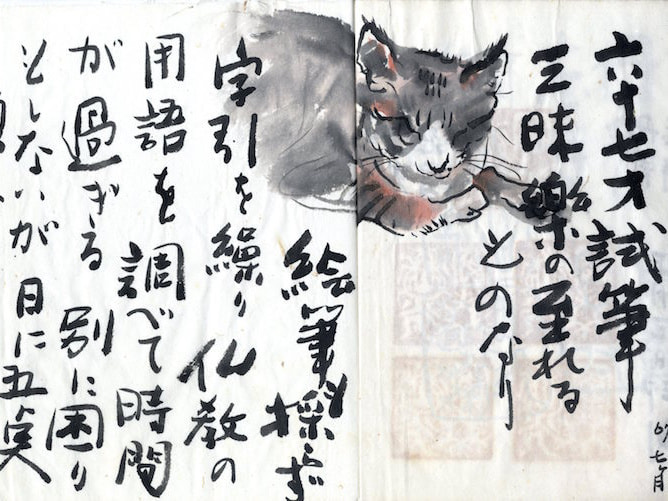 六十七才試筆
三昧樂の至れる
ものなり
67 七月
絵筆
字引を繰り 仏教の
用語を調べて時間
が過ぎる 別に困り
もしないが 日に五